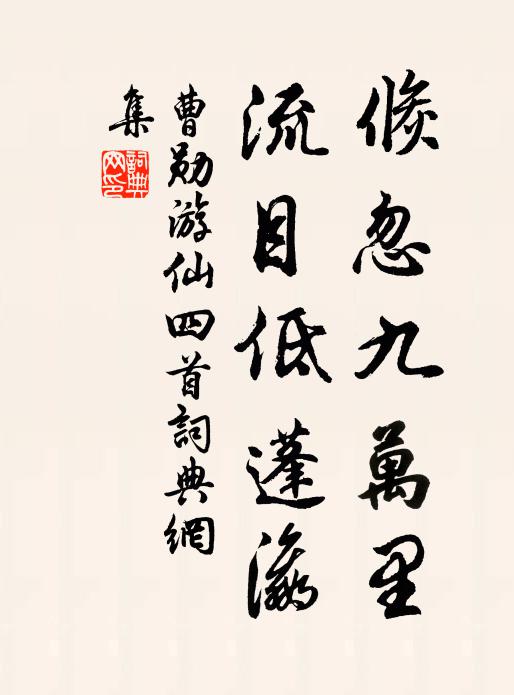 倏忽九萬里
流目低蓬瀛
曹勛游仙四首詞典網
集
詞典
网印